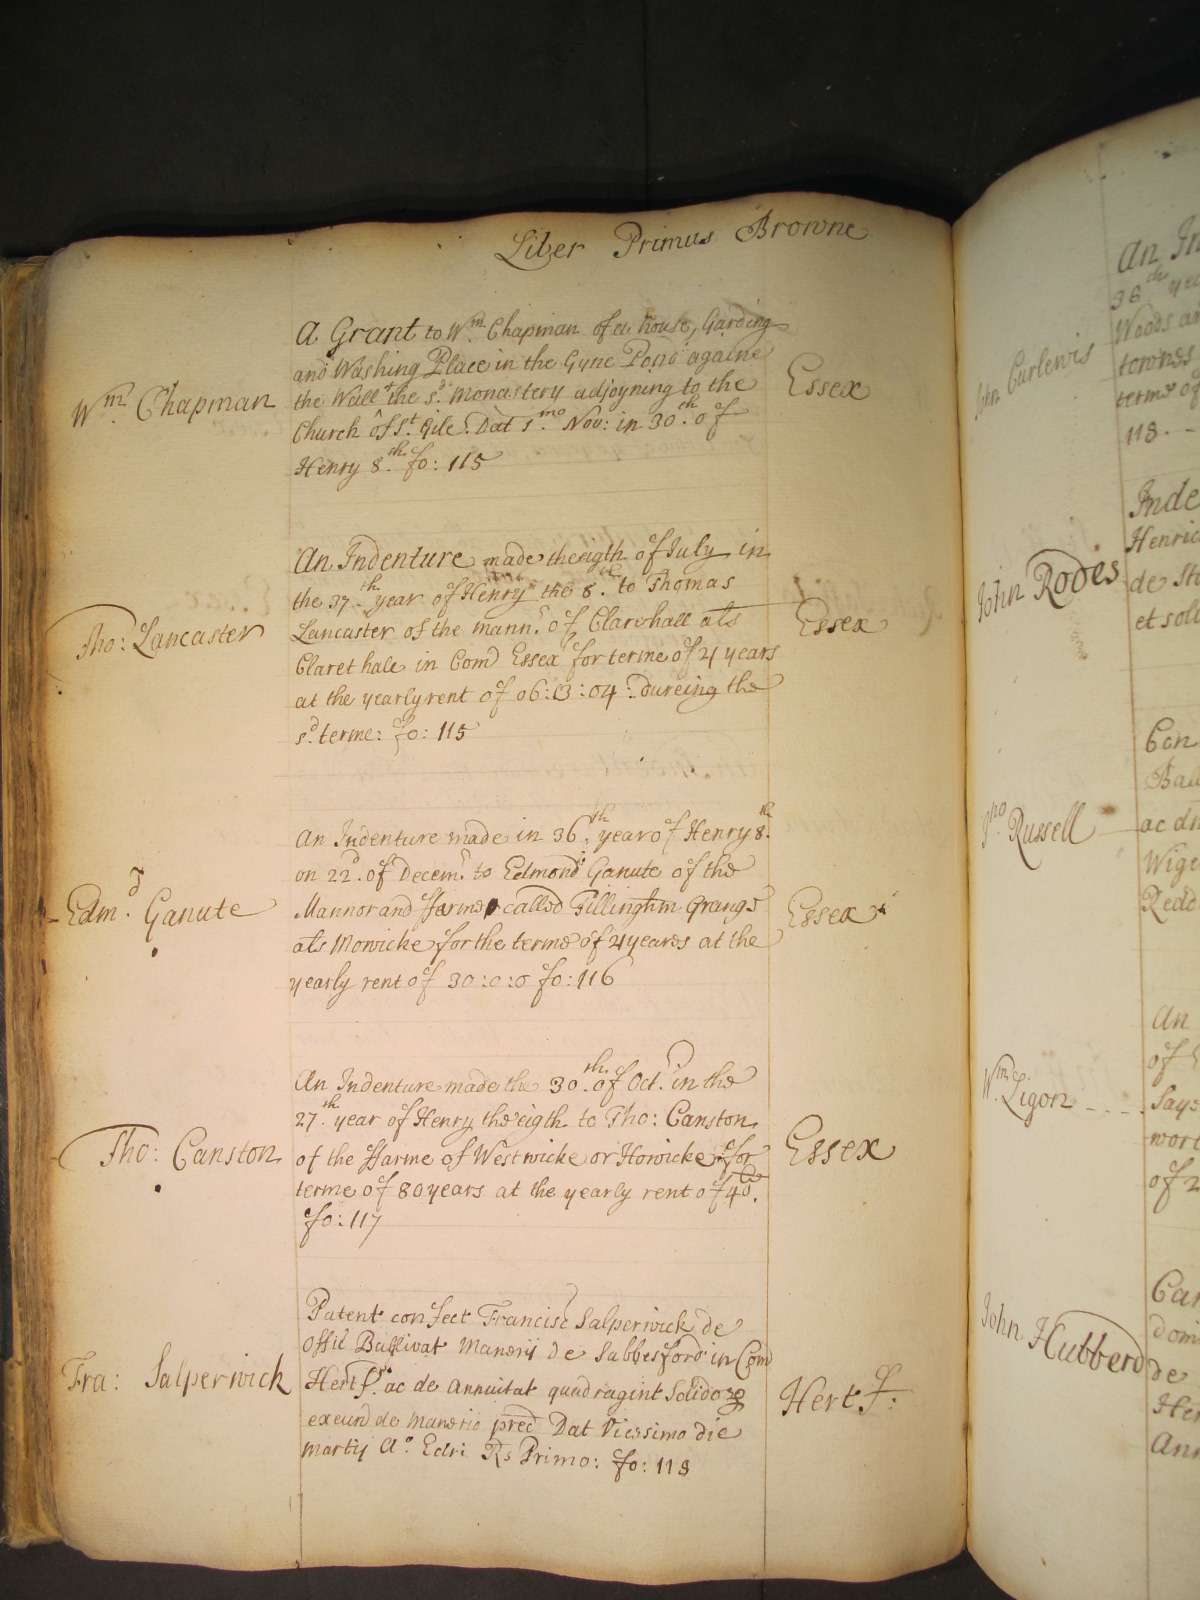 Liber Primus Browne
Wm. Chapman
A Grant to Wm. Chapman of a house, Garding
and Washing Place in the Gyne Pond againe
the Wall the sd. Monastery adjoyning to the
Church of St. Gile. Dat 5mo. Nov: in 30th. of
Henry 8th. fo: 115
Essex
Tho: Lancaster
An Indenture made the eigth of July in
the 37th. year of Henry the 8th. to Thomas
Lancaster of the mannr. of Clarehall als
Claret hale in Com Essex for terme of 21 years
at the yearly rent of 06:13:04: dureing the
sd. terme: fo: 115
Essex
Edmd. Ganute
An Indenture made in 36th. year of Henry 8th.
on 22d. of Decemr. to Edmond Ganute of the
Mannor and ffarme called Gillinghm Grange
als Mowicke for the terme of 21 years at the
yearly rent of 30:0:0 fo: 116
Essex
Tho: Canston
An Indenture made the 30th. of Oct. in the
27th. year of Henry the eigth to Tho: Canston
of the ffarme of Westwicke or Howicke for
terme of 80 years at the yearly rent of
fo: 117
Essex
Fra: Salperwick
Patent confect Francisc Salperwick de
Offic Ballivat Manerij de Sabbesford in Com
Hertf. ac de Annuitat quadragint Solidoꝝ
exeund de Manerio pred Dat Vicessimo die
Martij Ao. Edri Rs Primo: fo: 118
Hertf.
John Curlewis
An In
36th yea
Woods an
townes
terme of
118. -
John Rodes
Inde
Henric
de Sto
et soli
Jno. Russell
Con
Ball
ac dn
Wige
Redd
Wm. Ligon
An
of
Says
wort
of 2
John Hubberd
Can
Dom
de
Her
Ann